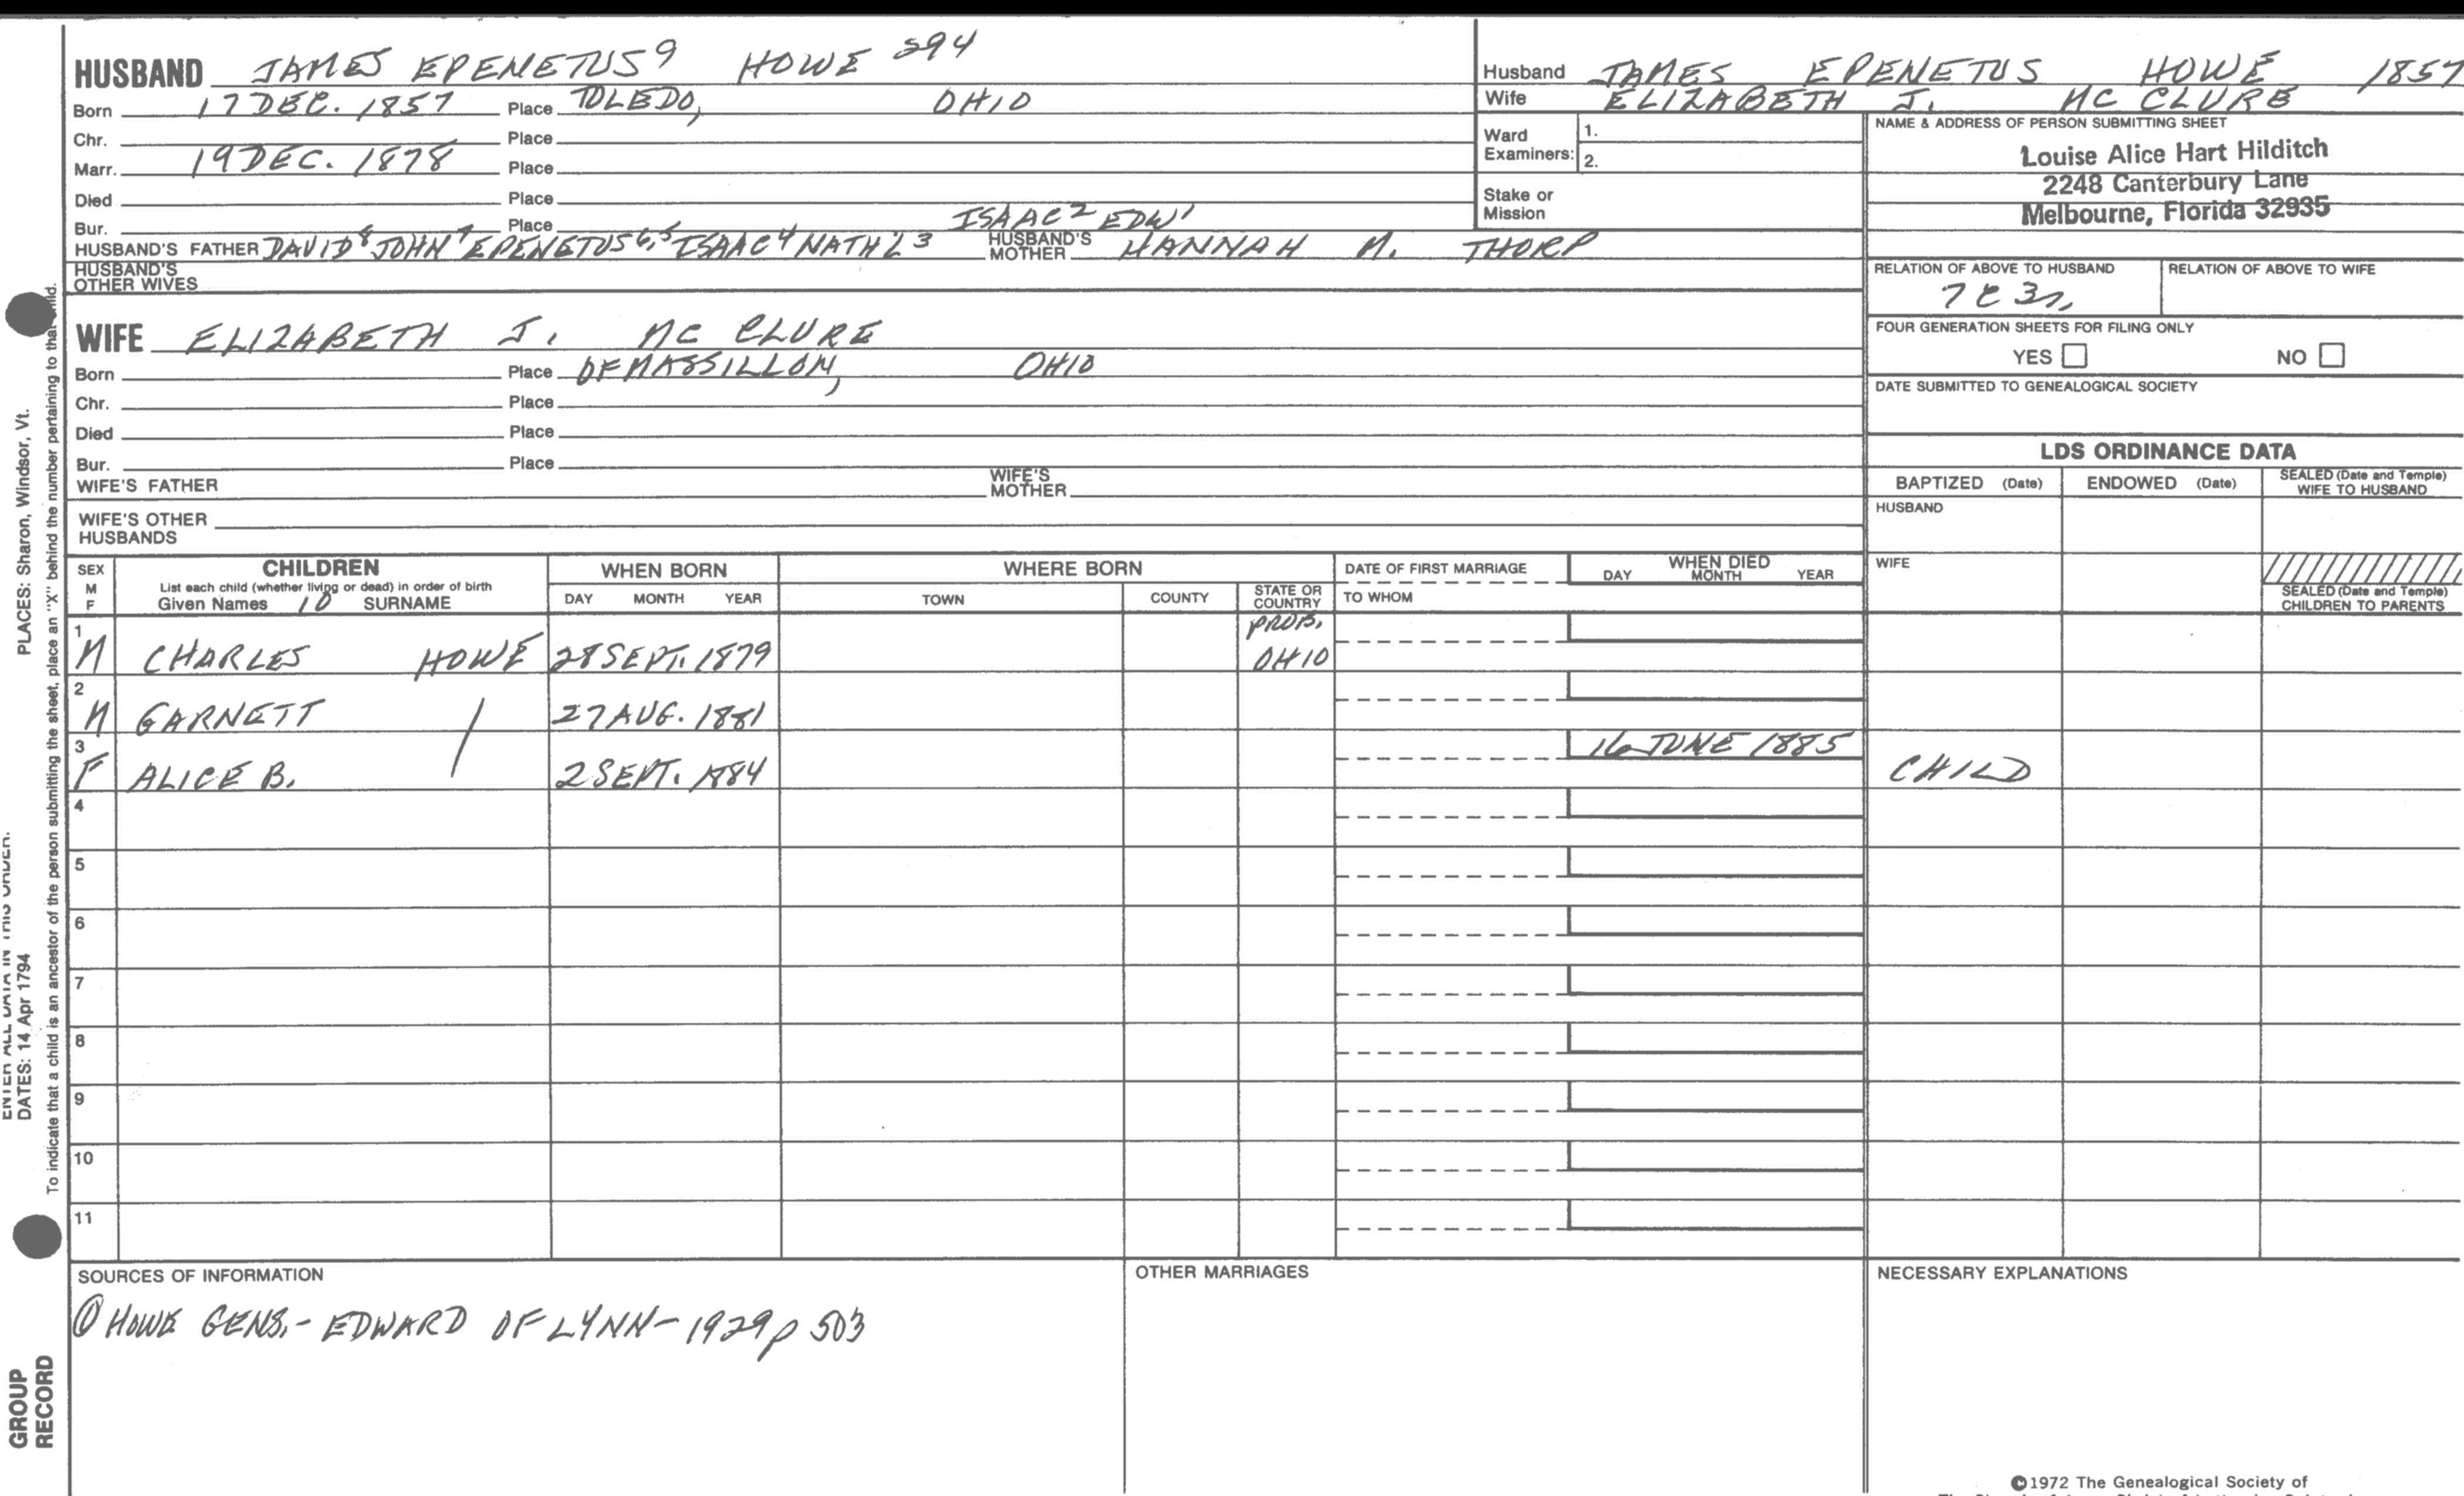 HUSBAND JAMES EPENETUS⁹ HOWE 394
Born 17 DEC. 1857 Place TOLEDO, OHIO
Chr. Place
Marr. 19 DEC. 1878 Place
Died Place
Bur. Place ISAAC² EDW¹
HUSBAND'S FATHER DAVID⁸ JOHN⁷ EPENETUS⁶,⁵ ISAAC⁴ NATH'L³ HUSBAND'S MOTHER HANNAH M. THORP
HUSBAND'S
OTHER WIVES
WIFE ELIZABETH J. MC CLURE
Born Place OF MASSILLON, OHIO
Chr. Place
Died Place
Bur. Place
WIFE'S FATHER WIFE'S MOTHER
WIFE'S OTHER
HUSBANDS
Husband JAMES EPENETUS HOWE 1857
Wife ELIZABETH J. MC CLURE
Ward
Examiners: 1.
2.
Stake or
Mission
NAME & ADDRESS OF PERSON SUBMITTING SHEET
Louise Alice Hart Hilditch
2248 Canterbury Lane
Melbourne, Florida 32935
RELATION OF ABOVE TO HUSBAND RELATION OF ABOVE TO WIFE
7 C 3r,
FOUR GENERATION SHEETS FOR FILING ONLY
YES NO
DATE SUBMITTED TO GENEALOGICAL SOCIETY
LDS ORDINANCE DATA
BAPTIZED (Date) ENDOWED (Date) SEALED (Date and Temple)
WIFE TO HUSBAND
HUSBAND
WIFE
SEALED (Date and Temple)
CHILDREN TO PARENTS
SEX
M
F
CHILDREN
List each child (whether living or dead) in order of birth
Given Names 10 SURNAME
WHEN BORN
DAY MONTH YEAR
WHERE BORN
TOWN COUNTY STATE OR
COUNTRY
DATE OF FIRST MARRIAGE
TO WHOM
WHEN DIED
DAY MONTH YEAR
1 PROB.
M CHARLES HOWE 28 SEPT. 1879 OHIO
2
M GARNETT / 27 AUG. 1881
3 16 JUNE 1885
F ALICE B. 2 SEPT. 1884 CHILD
4
5
6
7
8
9
10
11
SOURCES OF INFORMATION
① HOWE GENS.- EDWARD OF LYNN- 1929 p 503
OTHER MARRIAGES
NECESSARY EXPLANATIONS
©1972 The Genealogical Society of
PLACES: Sharon, Windsor, Vt.
DATES: 14 Apr 1794
To indicate that a child is an ancestor of the person submitting the sheet, place an "X" behind the number pertaining to that child.
GROUP
RECORD